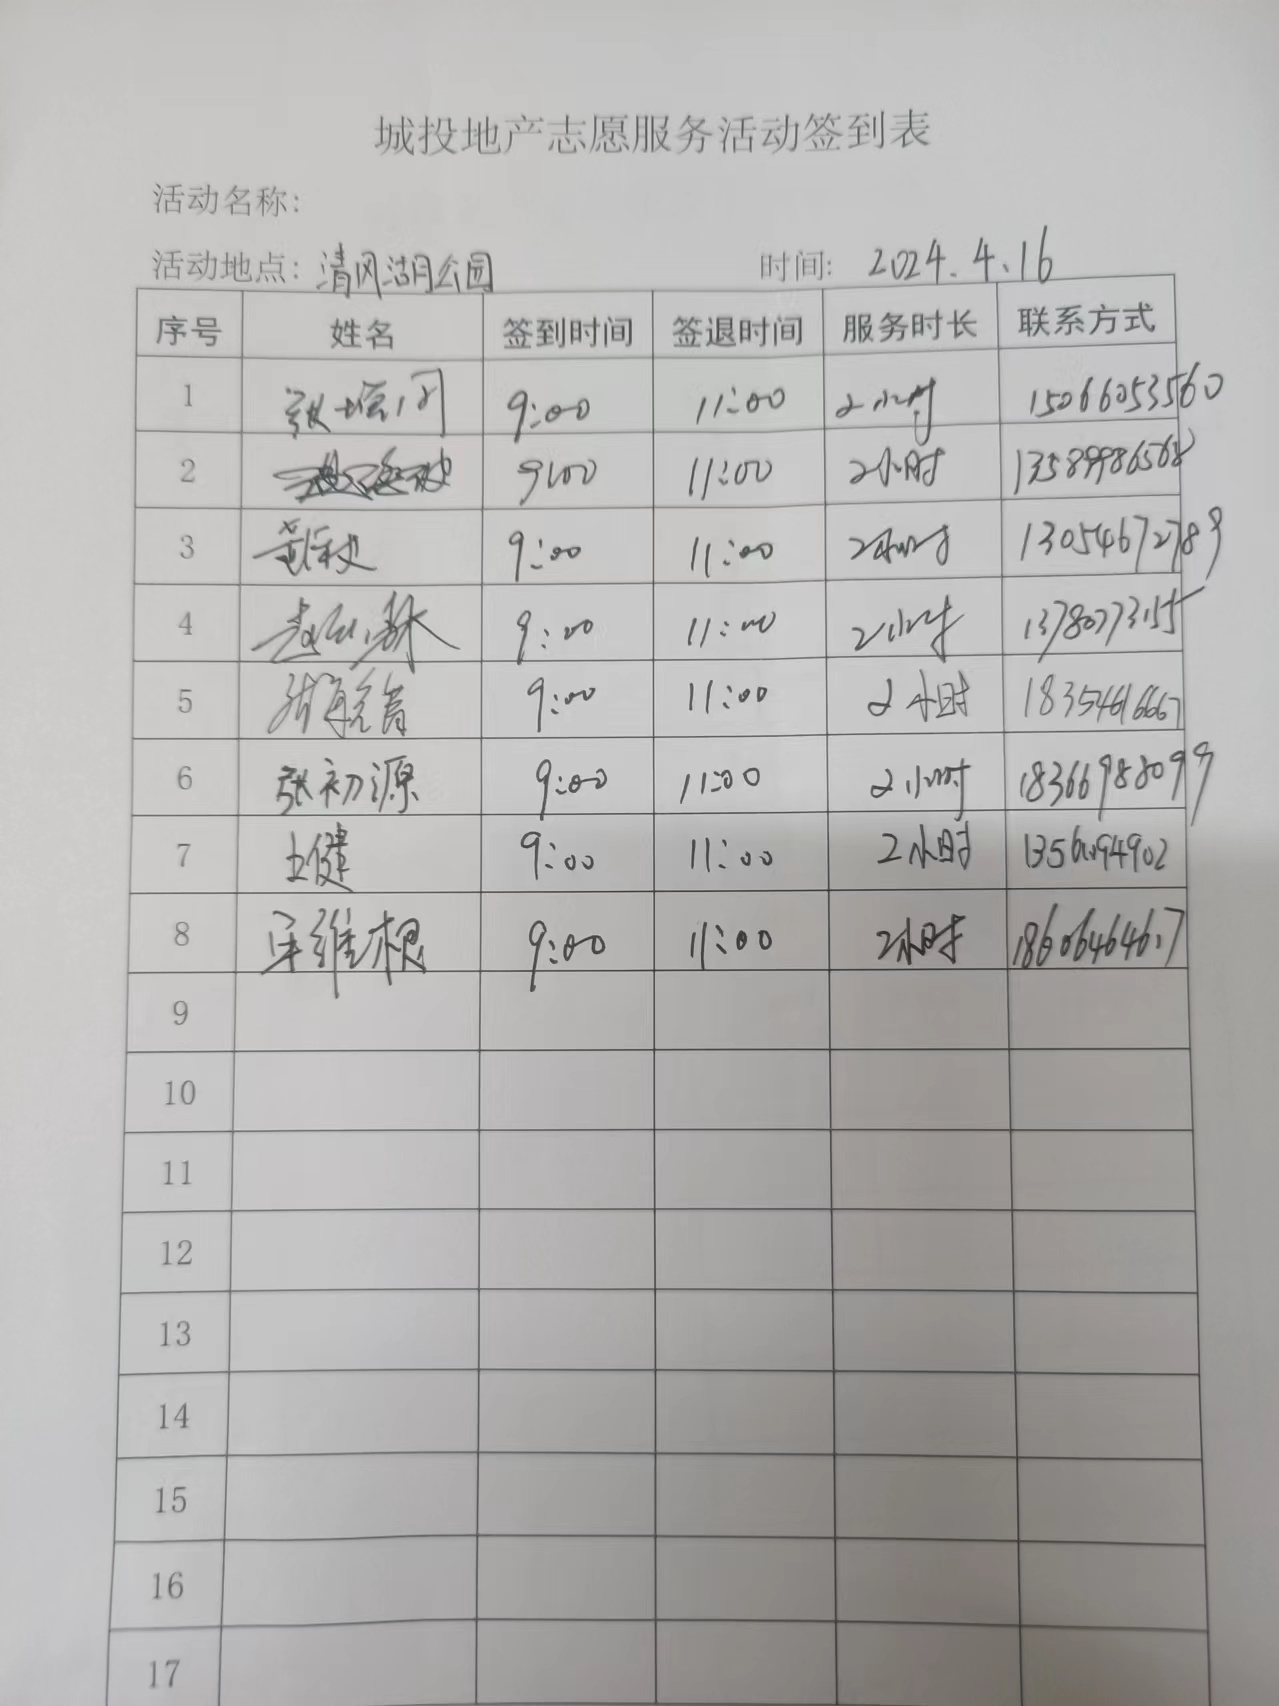 城投地产志愿服务活动签到表
活动名称:
活动地点: 清风湖公园 时间: 2024.4.16
序号 姓名 签到时间 签退时间 服务时长 联系方式
1 9:00 11:00 2小时 15066053560
2 9:00 11:00 2小时 13589986568
3 9:00 11:00 2小时 13054672789
4 9:00 11:00 2小时 13780773155
5 9:00 11:00 2小时 18354616667
6 张初源 9:00 11:00 2小时 18366988099
7 王健 9:00 11:00 2小时
8 宋维根 9:00 11:00 2小时 18606464617
9
10
11
12
13
14
15
16
17